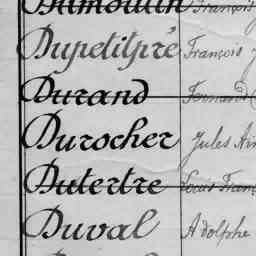 Dumoulin François
Dupetitpré François J
Durand Fernand
Durocher Jules
Dutertre Louis Fran
Duval Adolphe